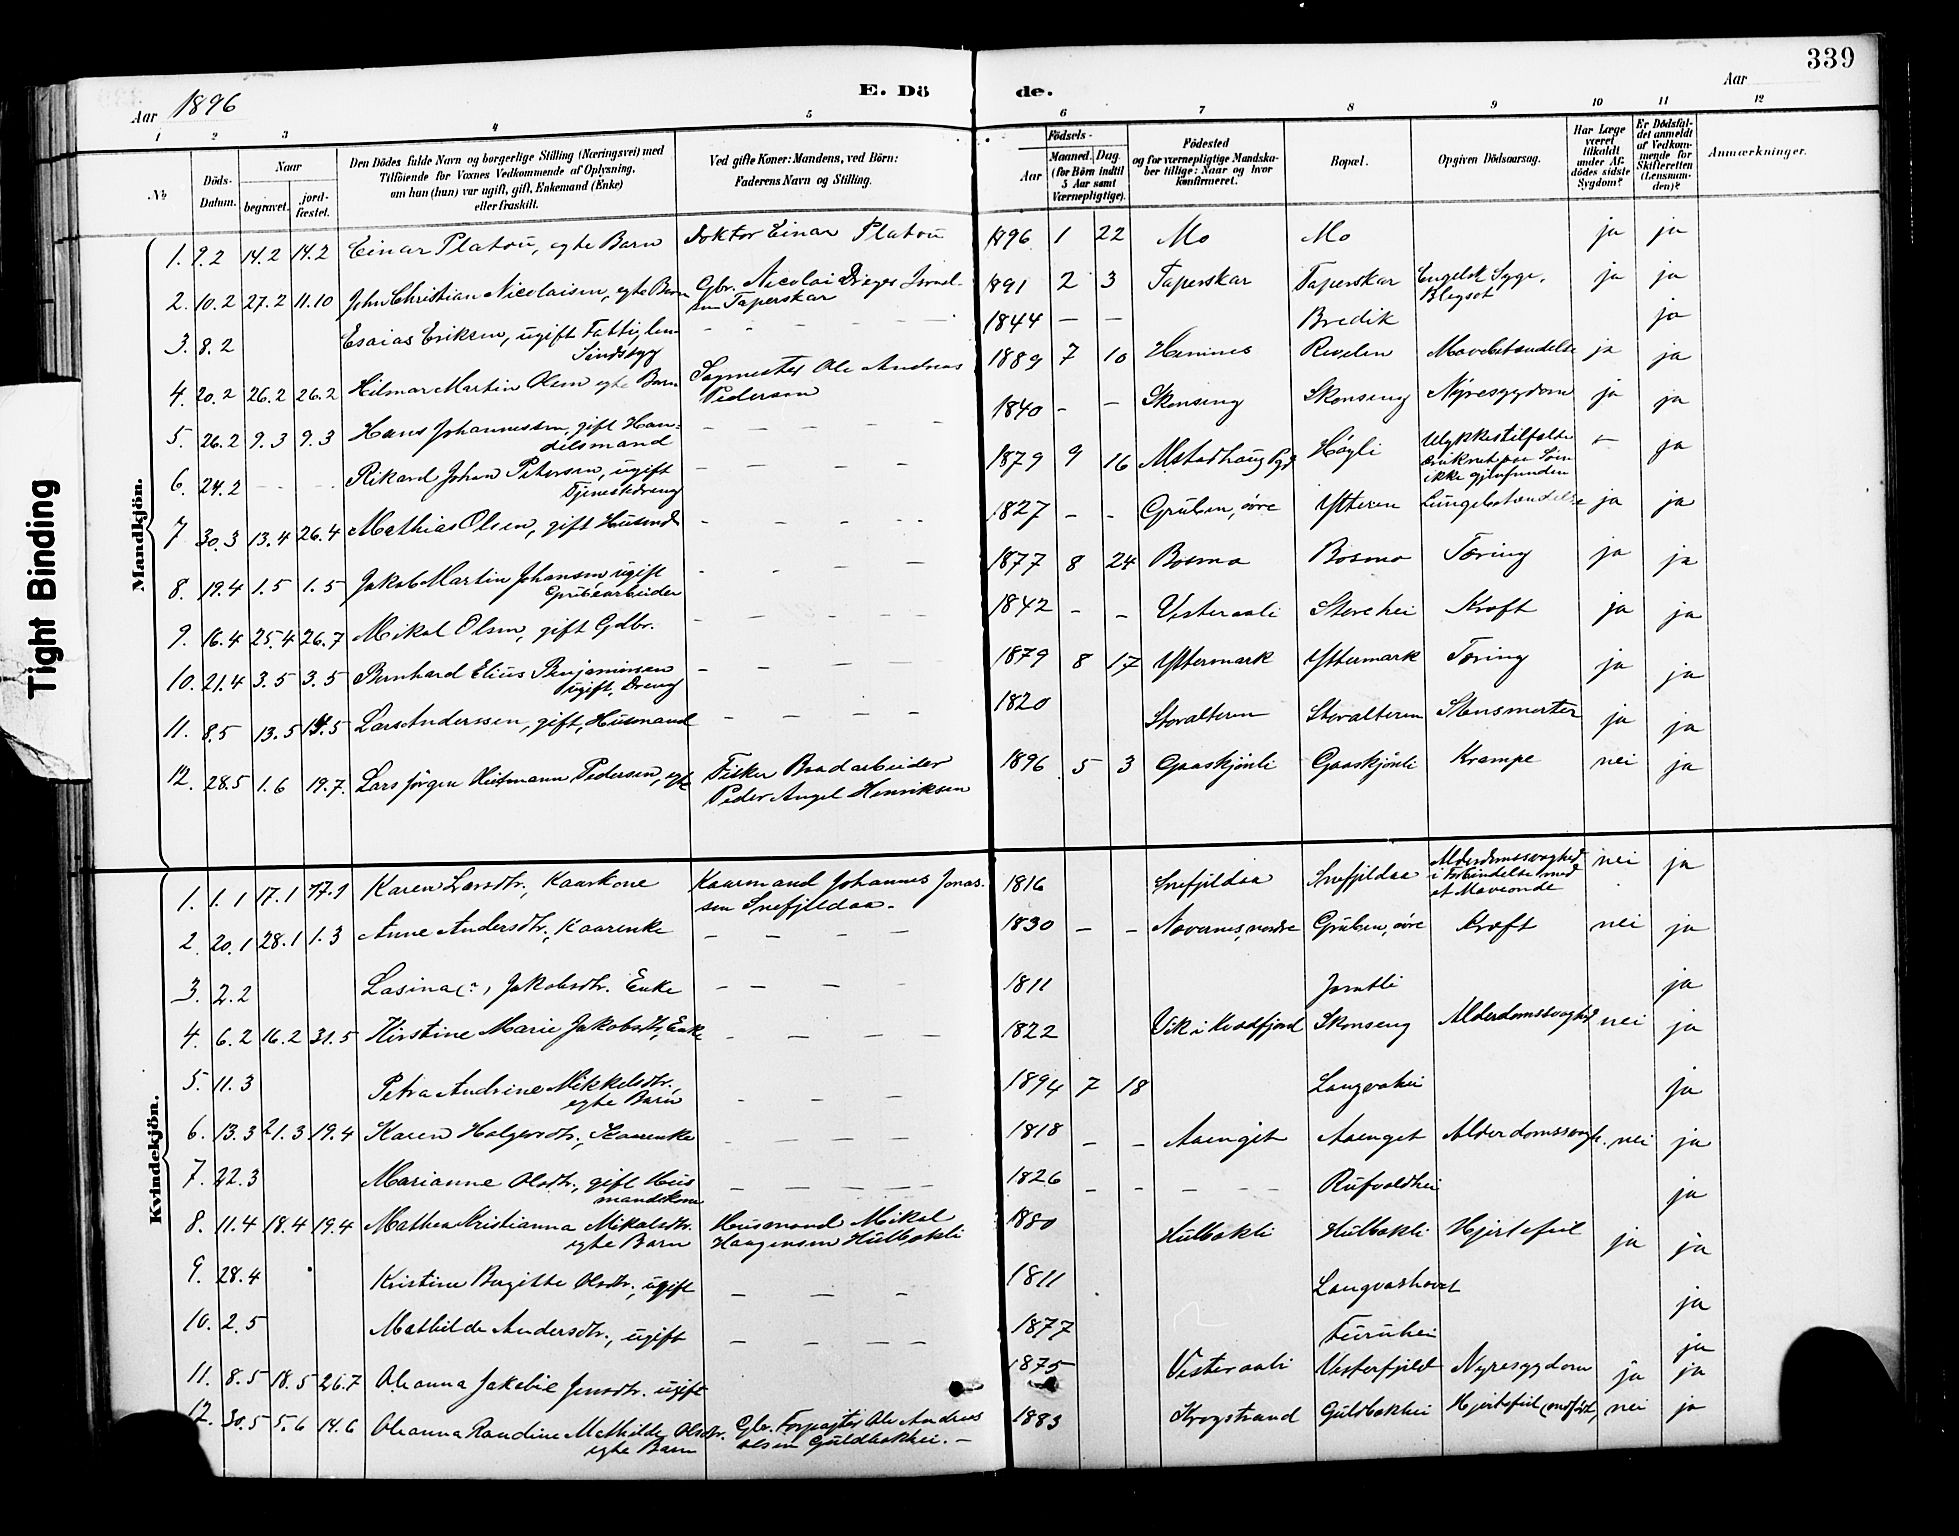 339
Aar 1896
E. Dö de.
Aar
1 2 3 4 5 6 7 8 9 10 11 12
No. Döds-Datum. Naar begravet. jord-fæstet. Den Dödes fulde Navn og borgerlige Stilling (Næringsvei) med Tilföiende for Voxnes Vedkommende af Oplysning, om han (hun) var ugift, gift, Enkemand (Enke) eller fraskilt. Ved gifte Koner: Mandens, ved Börn: Faderens Navn og Stilling. Födsels- Aar Maaned. Dag. (for Börn indtil 5 Aar samt Værnepligtige). Födested og for værnepligtige Mandska-ber tillige: Naar og hvor konfirmeret. Bopæl. Opgiven Dödsaarsag. Har Læge været tilkaldt under Af-dödes sidste Sygdom? Er Dödsfal-det anmeldt af Vedkom-mende for Skifteretten (Lensman-den)? Anmærkninger.
Tight Binding
Mandkjön.
1. 9.2 14.2 14.2 Einar Platou, egte Barn Doktor Einar Platou 1896 1 22 Mo Mo ja ja
2. 10.2 27.2 11.10 John Christian Nicolaisen, egte Barn Gbr. Nicolai Taperskar 1891 2 3 Taperskar Taperskar Engelsk Syge, Blegsot ja ja
3. 8.2 Esaias Eriksen, ugift Fattiglem Sindssyg – – – – 1844 – – Bredik ja
4. 20.2 26.2 26.2 Hilmar Martin Olsen egte Barn Sagmester Ole Andreas Pedersen 1889 7 10 Hemnes Revelen Mavebetændelse ja ja
5. 26.2 9.3 9.3 Hans Johannessen, gift Han-delsmand – – – – 1840 – – Skonseng Skonseng Nyresygdom ja ja
6. 24.2 – – Rikard Johan Petersen, ugift Tjenestedreng – – – – 1879 9 16 Alstadhaug Pgd Høgli Ulykkestilfælde druknet paa Søen ikke gjenfunden – ja
7 30.3 13.4 26.4 Mathias Olsen, gift Husmd – – – – 1827 – – Gruben, øvre Ytteren Lungebetændelse ja ja
8. 19.4 1.5 1.5 Jakob Martin Johansen ugift Grubearbeider – – – – 1877 8 24 Bosmo Bosmo Tæring ja ja
9. 16.4 25.4 26.7 Mikal Olsen, gift Gdbr. – – – – 1842 – – Vesteraali Storehei Kræft ja ja
10. 21.4 3.5 3.5 Bernhard Elius Benjaminsen ugift, Dreng – – – – 1879 8 17 Yttermark Yttermark Tæring ja ja
11. 8.5 13.5 14.5 Lars Anderssen, gift, Husmand – – – – 1820 Storalteren Storalteren Stensmerter ja ja
12. 28.5 1.6 19.7. Lars Jørgen Heitmann Pedersen, egte Fisker Peder Angel Henriksen 1896 5 3 Gaaskjønli Gaaskjønli Krampe nei ja
Kvindekjön.
1. 1.1 17.1 17.1 Karen Larsdtr., Kaarkone Kaarmand Johannes Jonas-sen Snefjeldaa. 1816 Snefjeldaa Snefjeldaa Alderdomssvaghed i Forbindelse med et Maveonde nei ja
2. 20.1 28.1 1.3 Anne Andersdtr., Kaarenke – – – – 1830 – – Nævernes, nordre Gruben, øvre Kræft nei ja
3. 2.2 Lasina (?) Jakobsdtr. Enke – – – – 1811 Jamtli ja
4. 6.2 16.2 31.5 Kirstine Marie Jakobsdtr, Enke – – – – 1822 Vik i Kvædfjord Skonseng Alderdomssvaghed nei ja
5. 11.3 Petra Andrine Mikkelsdtr., egte Barn – – – 1894 7 18 Langvahei ja
6. 13.3 21.3 19.4 Karen Holgersdtr., Kaarenke – – – – 1818 – – Aaenget Aaenget Alderdomssvagh. nei ja
7. 22.3 Marianne Olsdtr., gift Hus mandskone – – – – 1826 – – – – – Rufvoldhei ja
8. 11.4 18.4 19.4 Mathea Kristianna Mikalsdtr. egte Barn Husmand Mikal Haagensen Hulbækli 1880 Hulbækli Hulbækli Hjertefeil ja ja
9. 28.4 Kristine Birgitte Olsdtr., ugift – – – 1811 Langvashovet ja
10. 2.5 Mathilde Andersdtr., ugift – – – – 1877 Furuhei ja
11. 8.5 18.5 26.7 Oleanna Jakobie Jensdtr. ugift 1875 Vesteraali Vesterfjeld Nyresygdom ja ja
12. 30.5 5.6 14.6 Oleanna Randine Mathilde Olsdtr. egte Barn Gbr. Forpagter Ole Andreas Olsen Guldbækhei. – 1883 Krogstrand Guldbækhei Hjertefeil (medfødt) nei ja